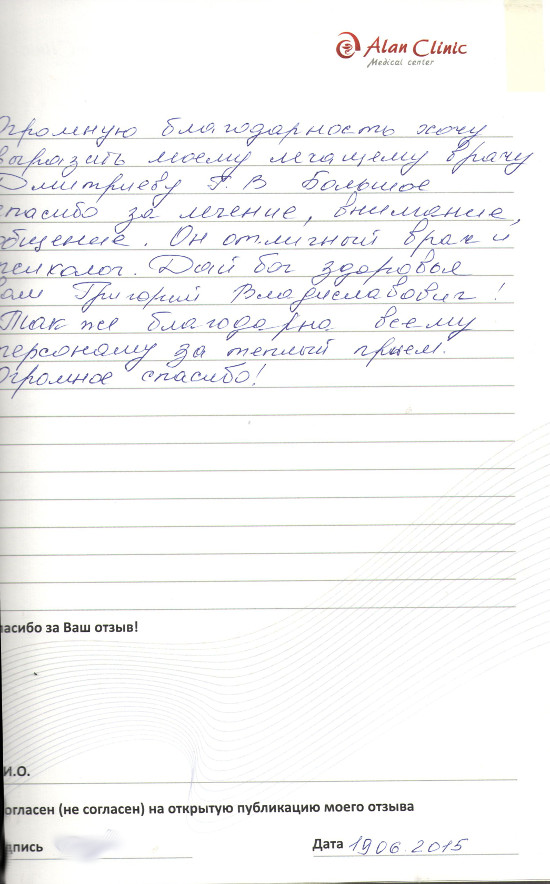 Alan Clinic
Medical center
Огромную благодарность хочу
выразить моему лечащему врачу
Дмитриеву Г. В Большое
спасибо за лечение, внимание,
общение. Он отличный врач и
психолог. Дай бог здоровья
вам Григорий Владиславович!
Так же благодарна всему
персоналу за теплый прием.
Огромное спасибо!
пасибо за Ваш отзыв!
И.О.
огласен (не согласен) на открытую публикацию моего отзыва
дпись
Дата 19 06 2015